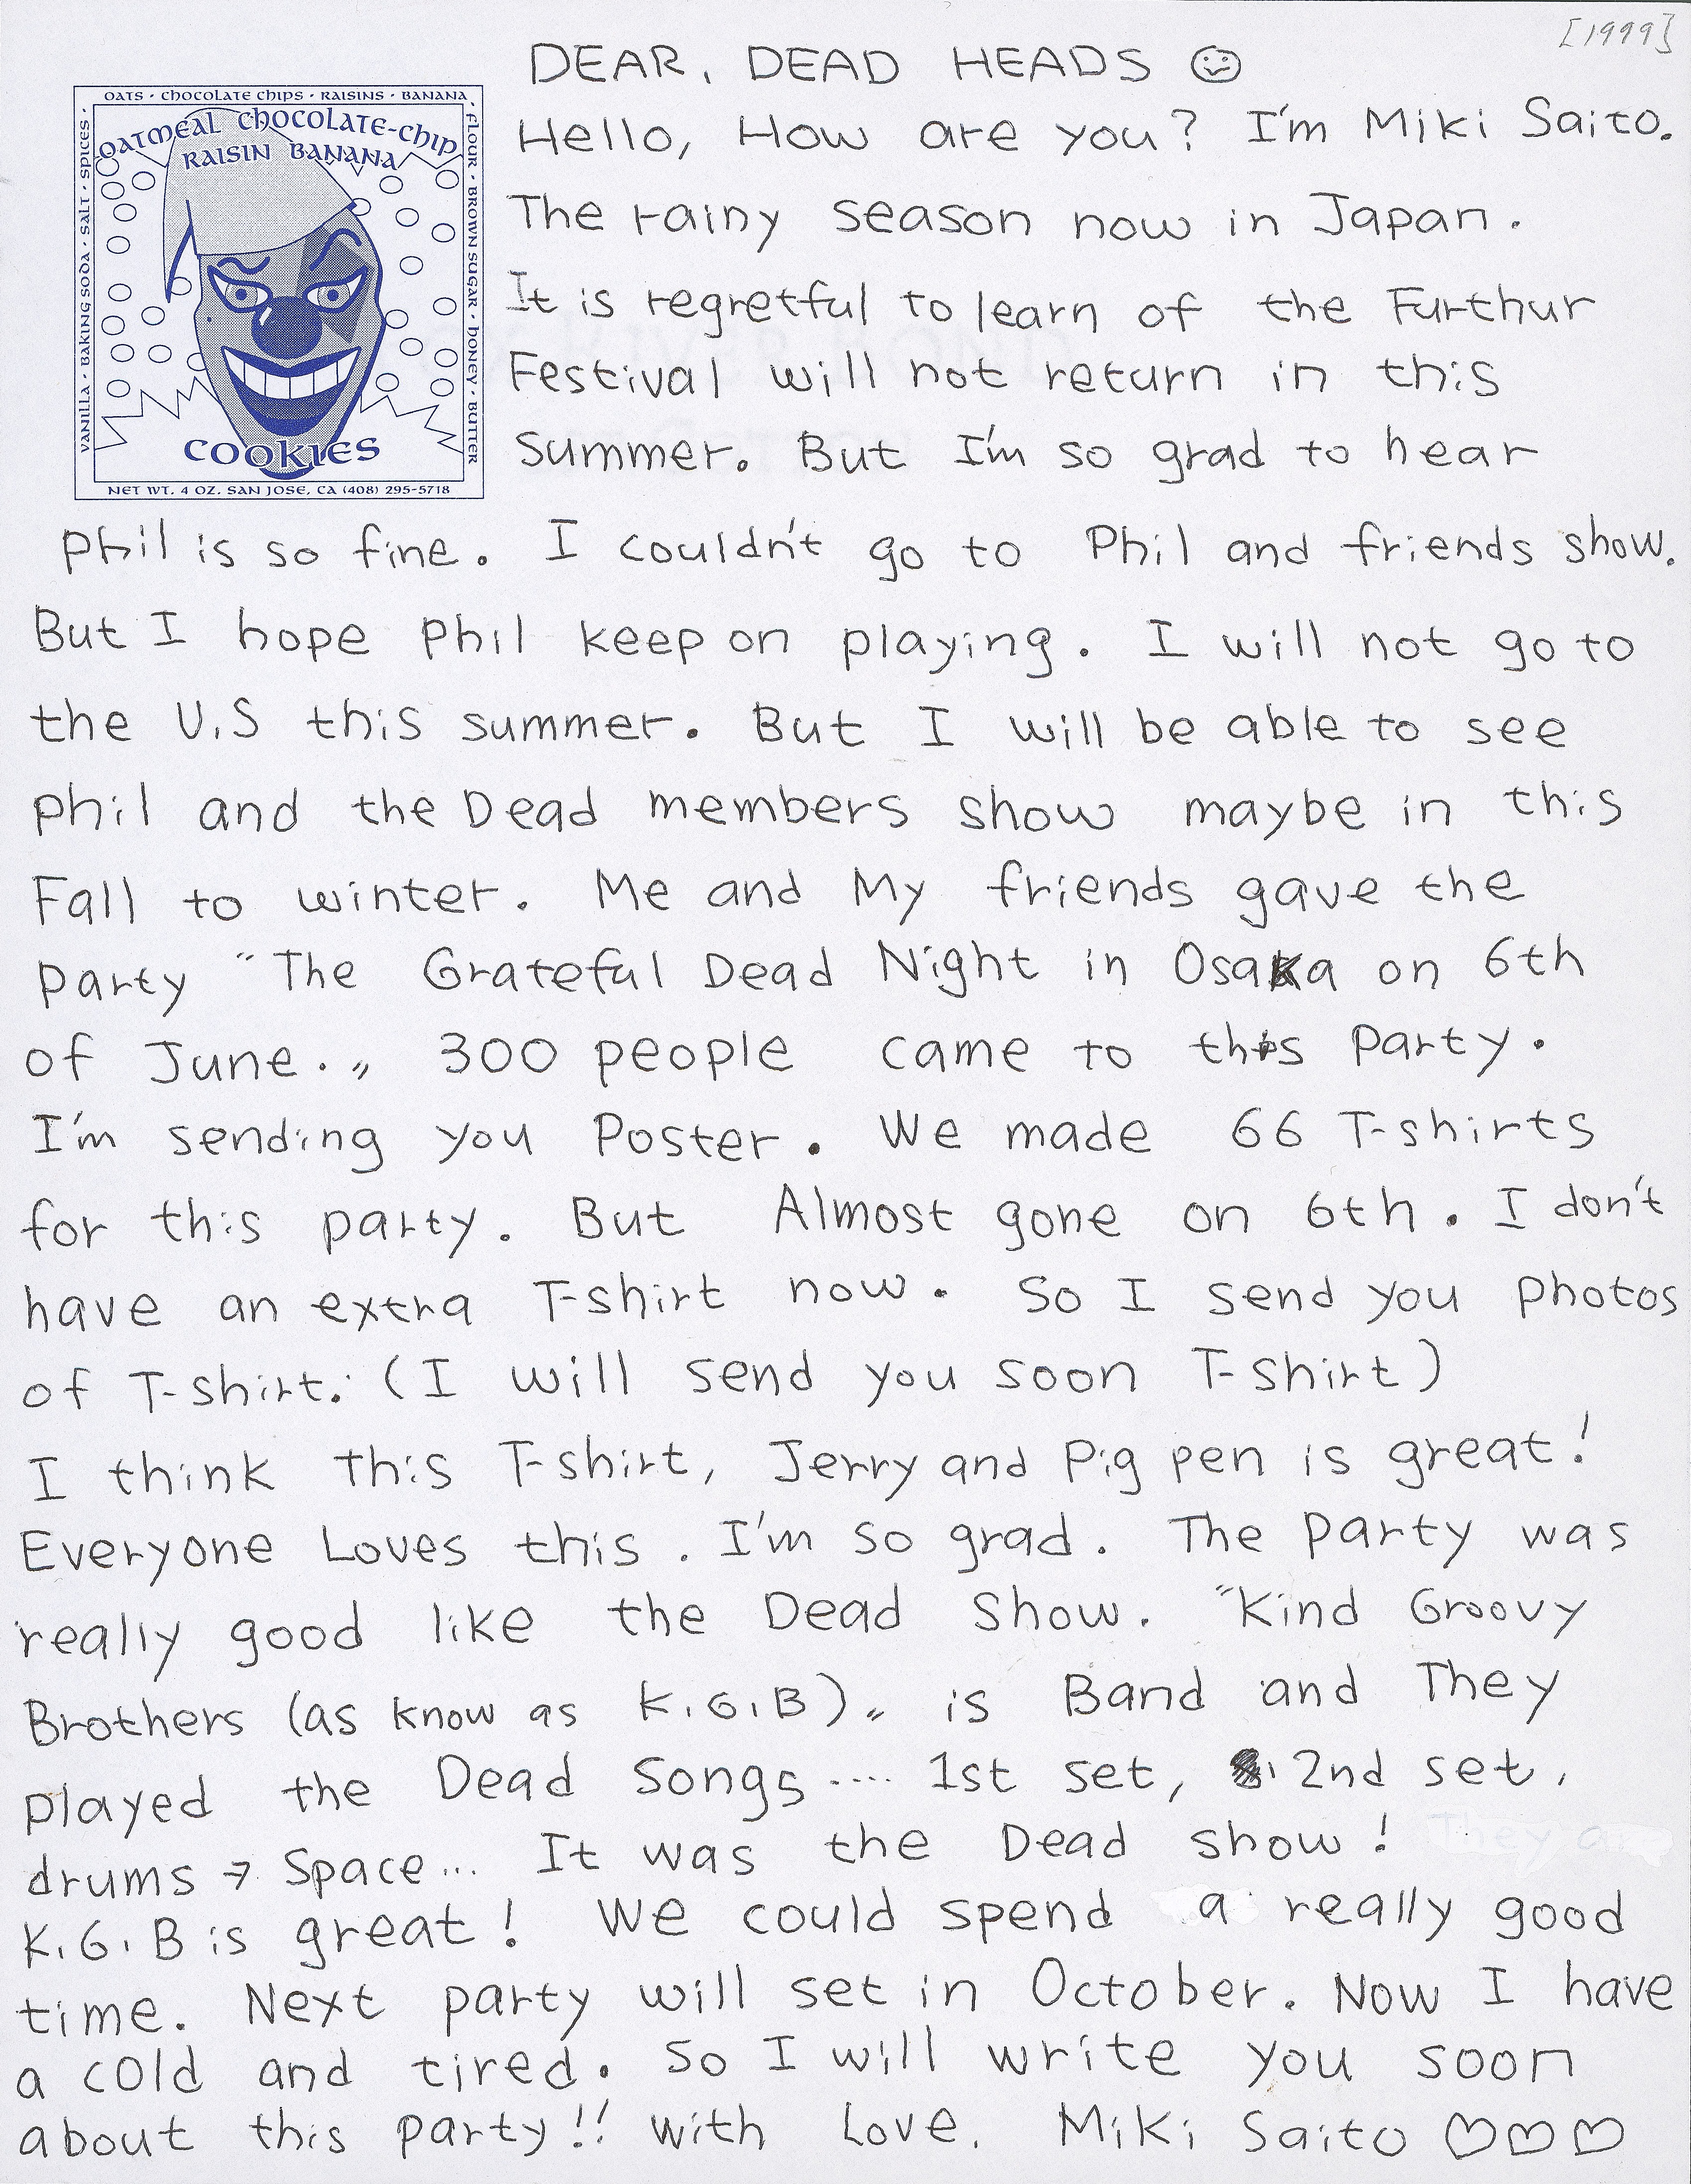 [1999]
DEAR, DEAD HEADS ☺
OATS · CHOCOLATE CHIPS · RAISINS · BANANA ·
FLOUR · BROWN SUGAR · HONEY · BUTTER
VANILLA · BAKING SODA · SALT · SPICES ·
OATMEAL CHOCOLATE-CHIP
RAISIN BANANA
COOKIES
NET WT. 4 OZ. SAN JOSE, CA (408) 295-5718
Hello, How are you? I'm Miki Saito.
The rainy season now in Japan.
It is regretful to learn of the Furthur
Festival will not return in this
summer. But I'm so grad to hear
Phil is so fine. I couldn't go to Phil and friends show.
But I hope Phil keep on playing. I will not go to
the U.S this summer. But I will be able to see
Phil and the Dead members show maybe in this
Fall to winter. Me and My friends gave the
Party "The Grateful Dead Night in Osaka on 6th
of June." 300 people came to this Party.
I'm sending you Poster. We made 66 T-shirts
for this party. But Almost gone on 6th. I don't
have an extra T-shirt now. So I send you Photos
of T-shirt. (I will send you soon T-shirt)
I think this T-shirt, Jerry and Pig pen is great!
Everyone Loves this. I'm so grad. The Party was
really good like the Dead Show. "Kind Groovy
Brothers (as know as K.G.B)" is Band and They
played the Dead Songs.... 1st set, 2nd set,
drums → Space... It was the Dead show!
K.G.B is great! We could spend a really good
time. Next party will set in October. Now I have
a cold and tired. So I will write you soon
about this party!! with Love. Miki Saito ♡♡♡